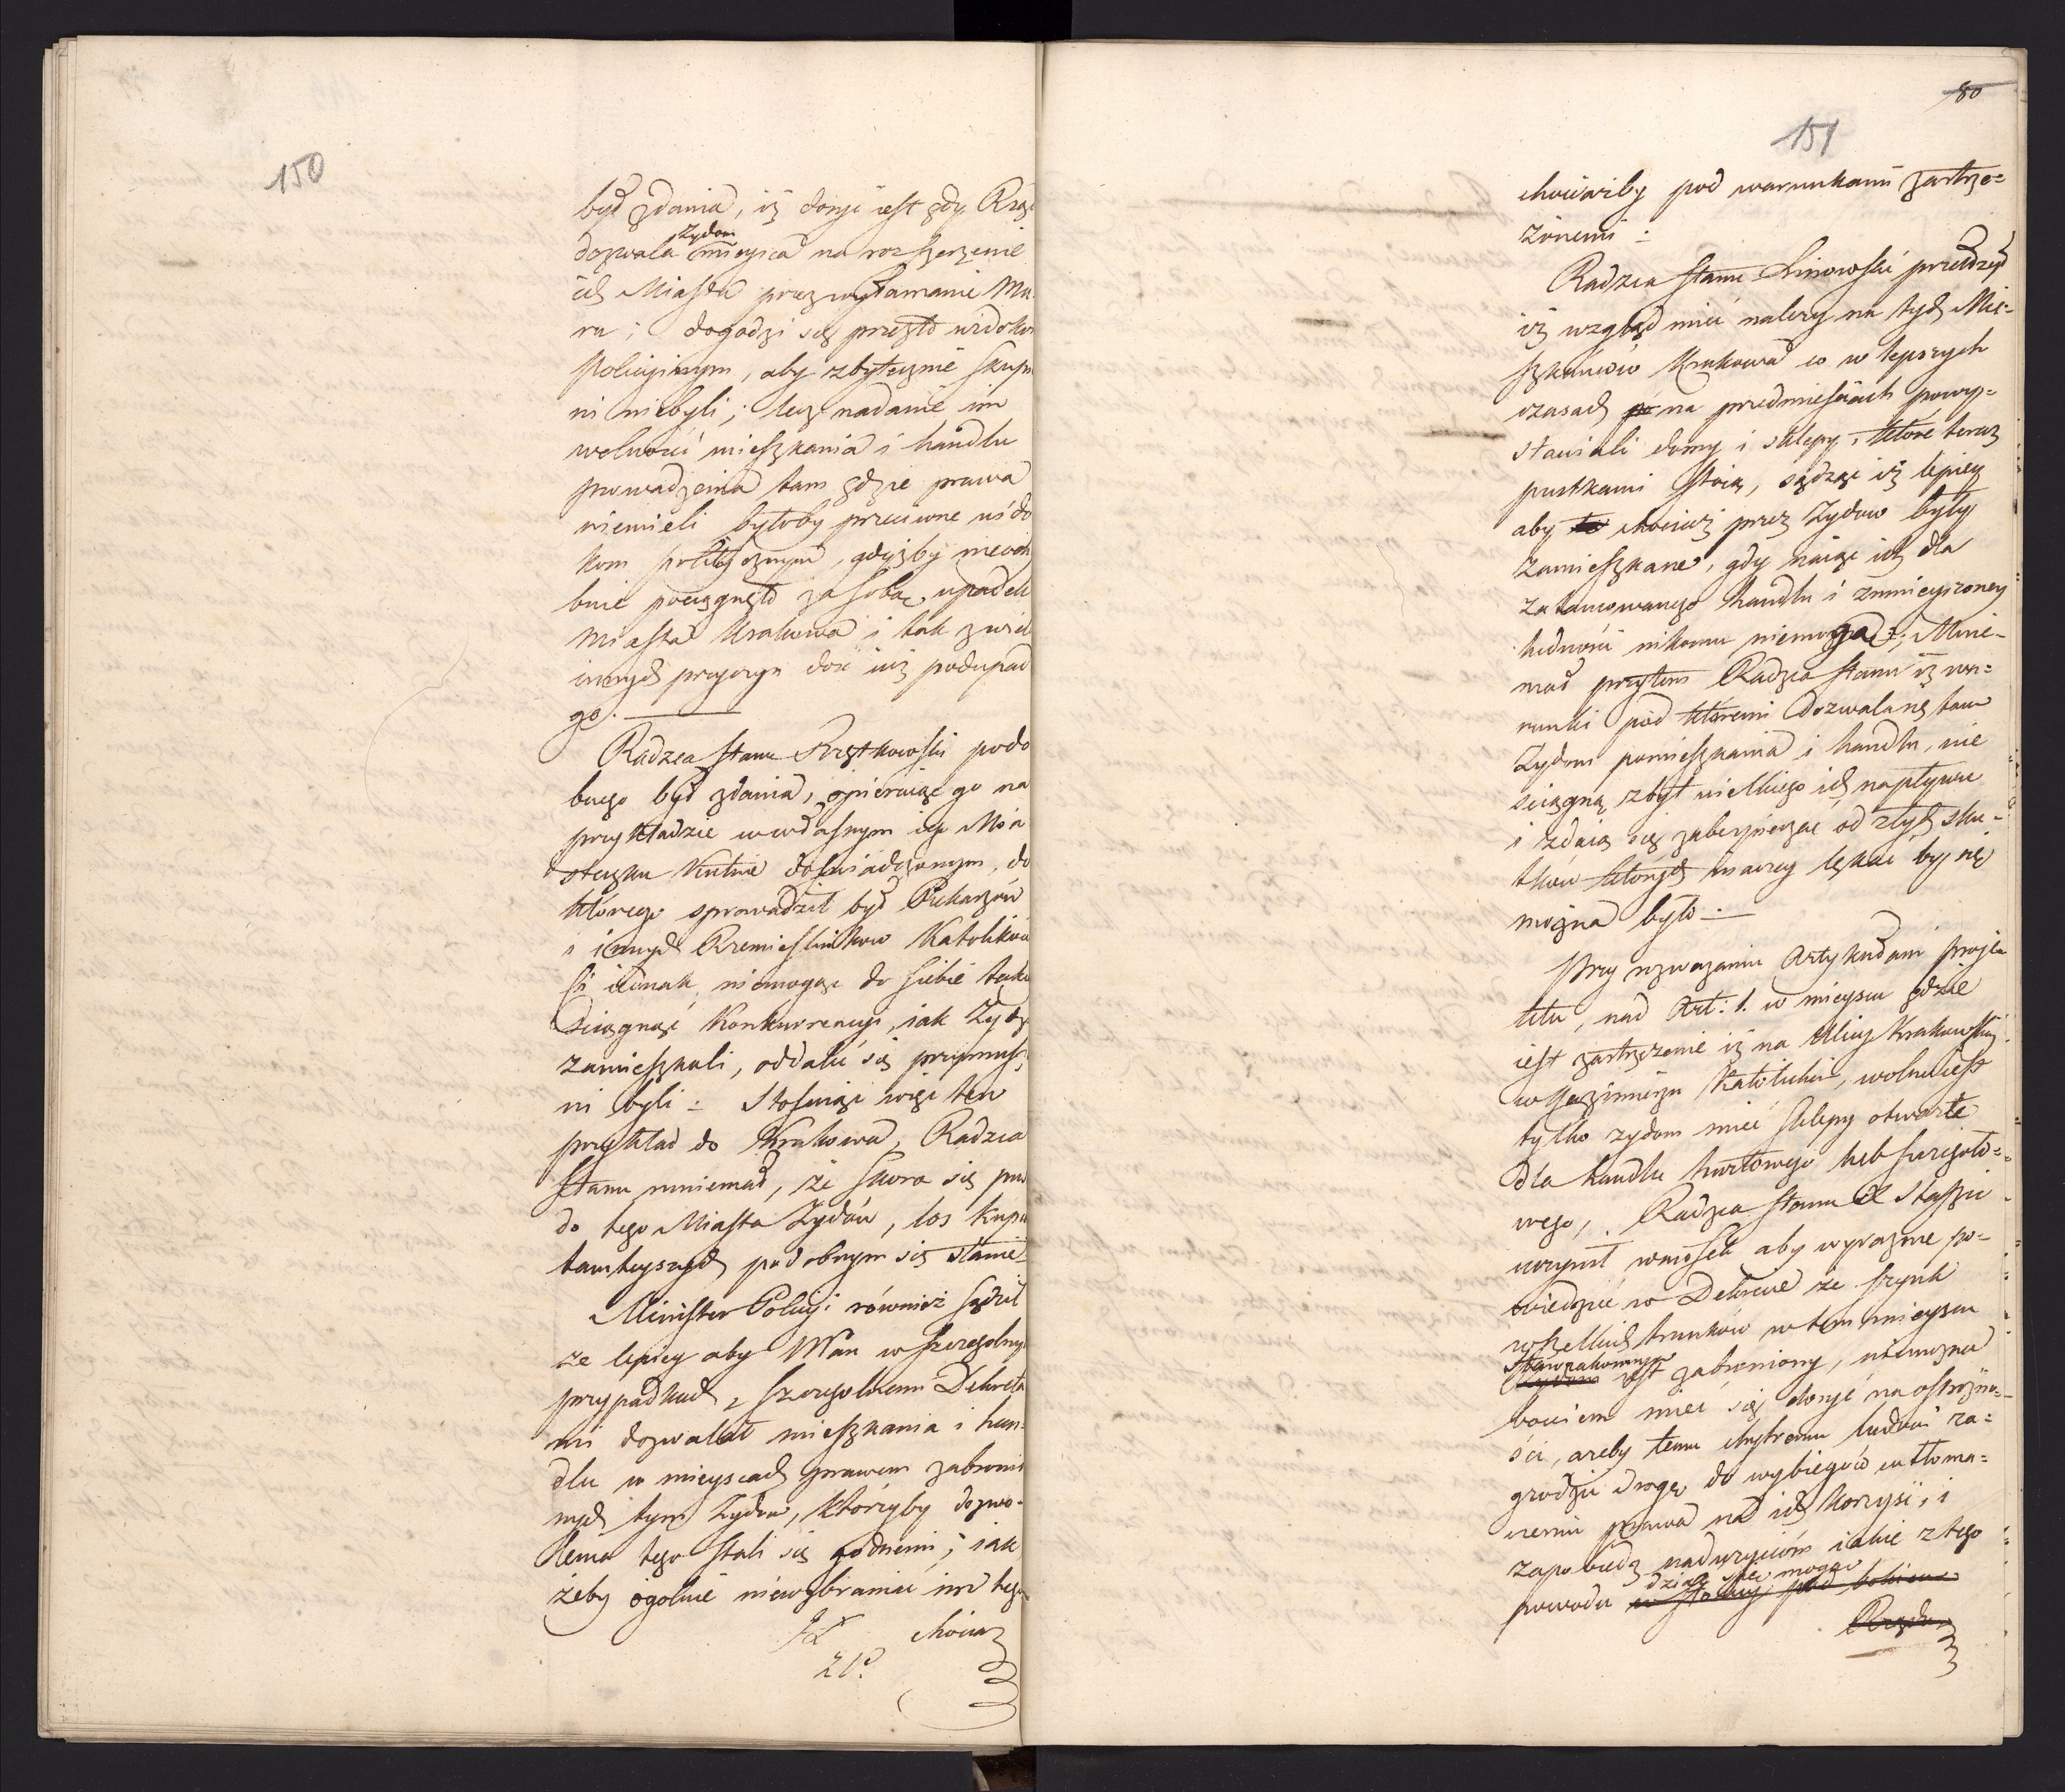 150
był zdania, iż dosyć iest gdy Rzą
dozwala Żydom mieysca na rozszerzenie
ich Miasta przez wyłamanie Mu
ru; dogodzi się przezto widokom
policyinym, aby zbytecznie skupie
ni niebyli; lecz nadanie im
wolności mieszkania i handlu
prowadzenia tam gdzie prawa
niemieli byłoby przeciwne wido
kom politycznym, gdyżby nieoch
bnie pociągnęło za sobą upadek
Miasta Krakowa i tak z wiel
innych przyczyn dość iuż podupad
go.
Radzca Stanu podo
bnego był zdania, opieraiąc go na
przykładzie w własnym iego Mia
steczku Kutnie doświadczonym, do
którego sprowadził był Piekarzów
i innych Rzemieślników Katolików
Ci iednak, niemogąc do siebie takiej
ściągnąć Konkurrencyi, iak Żydzi
zamieszkali, oddalić się przymusze
ni byli: Stosuiąc więc ten
przykład do Krakowa, Radzca
Stanu mniemał, że skoro się pu
do tego Miasta Żydów, los kupc
tamteyszych podobnym się stanie
Minister Policyi również sądził
że lepiey aby Pan w szczególnych
przypadkach, szczególnemi Dekreta
mi dozwalał mieszkania i han=
dlu w mieyscach prawem zabronio
nych tym Żydom, którzyby dozwo-
lenia tego stali się godnemi; iak
żeby ogólnie niewzbraniać im tego
chociaż
21.
80
151
chociażby pod warunkami zastrze=
żonemi:
Radzca Stanu Linowski przełożył
iż wzgląd mieć należy na tych Mie=
szkańców Krakowa co w lepszych
czasach na przedmieściach powy=
stawiali domy i sklepy, które teraz
pustkami stoią, sądząc iż lepiey
aby chociaż przez Żydow były
zamieszkane, gdy naiąć ich dla
zatamowanego handlu i zmnieyszoney
ludności nikomu niemogą; Mnie-
mał przytem Radzca Stanu iż wa=
runki pod któremi dozwalaią tam
Żydom pomieszkania i handlu, nie
ściągną zbyt wielkiego ich napływu
i zdaią się zabezpieczać od złych sku=
tków których inaczey lękać by się
można było
Przy rozważaniu Artykułami proje
ktu, nad Art: 1. w mieyscu gdzie
iest zastrzeżenie iż na Ulicy Krakowskiej
w Kazimierzu Katolickim, wolno iest
tylko żydom mieć sklepy otwarte
dla handlu hurtowego lub szczegóło=
wego, Radzca Stanu X Staszic
uczynił wniosek aby wyraźnie po-
wiedzieć w Dekrecie że szynk
wszelkich trunków w tem mieyscu
Starozakonnym iest zabroniony, niemożna
bowiem mieć się dosyć na ostrożno=
ści, ażeby temu chytremu ludowi za=
grodzić drogę do wybiegów w tłoma=
czeniu prawa na ich korzyść, i
zapobiedz nadużyciom iakie z tego
powodu dziać się mogą
Rządu